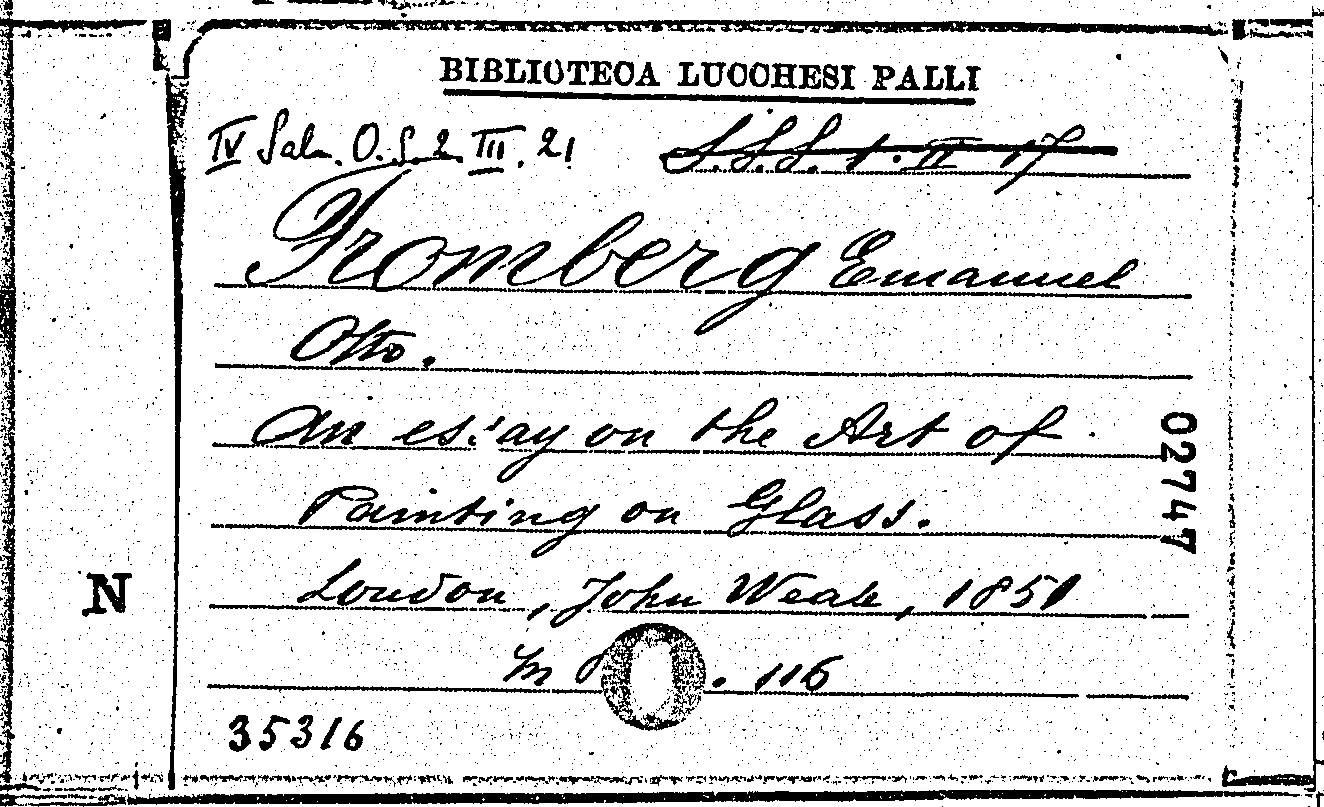 BIBLIOTECA LUCCHESI PALLI
IV Sala. O.S. 2. III. 21 S.S.S. 1. II 17
Fromberg Emanuel
Otto.
An essay on the Art of
Painting on Glass.
London, John Weale, 1851
in . 116
35316
02747
N